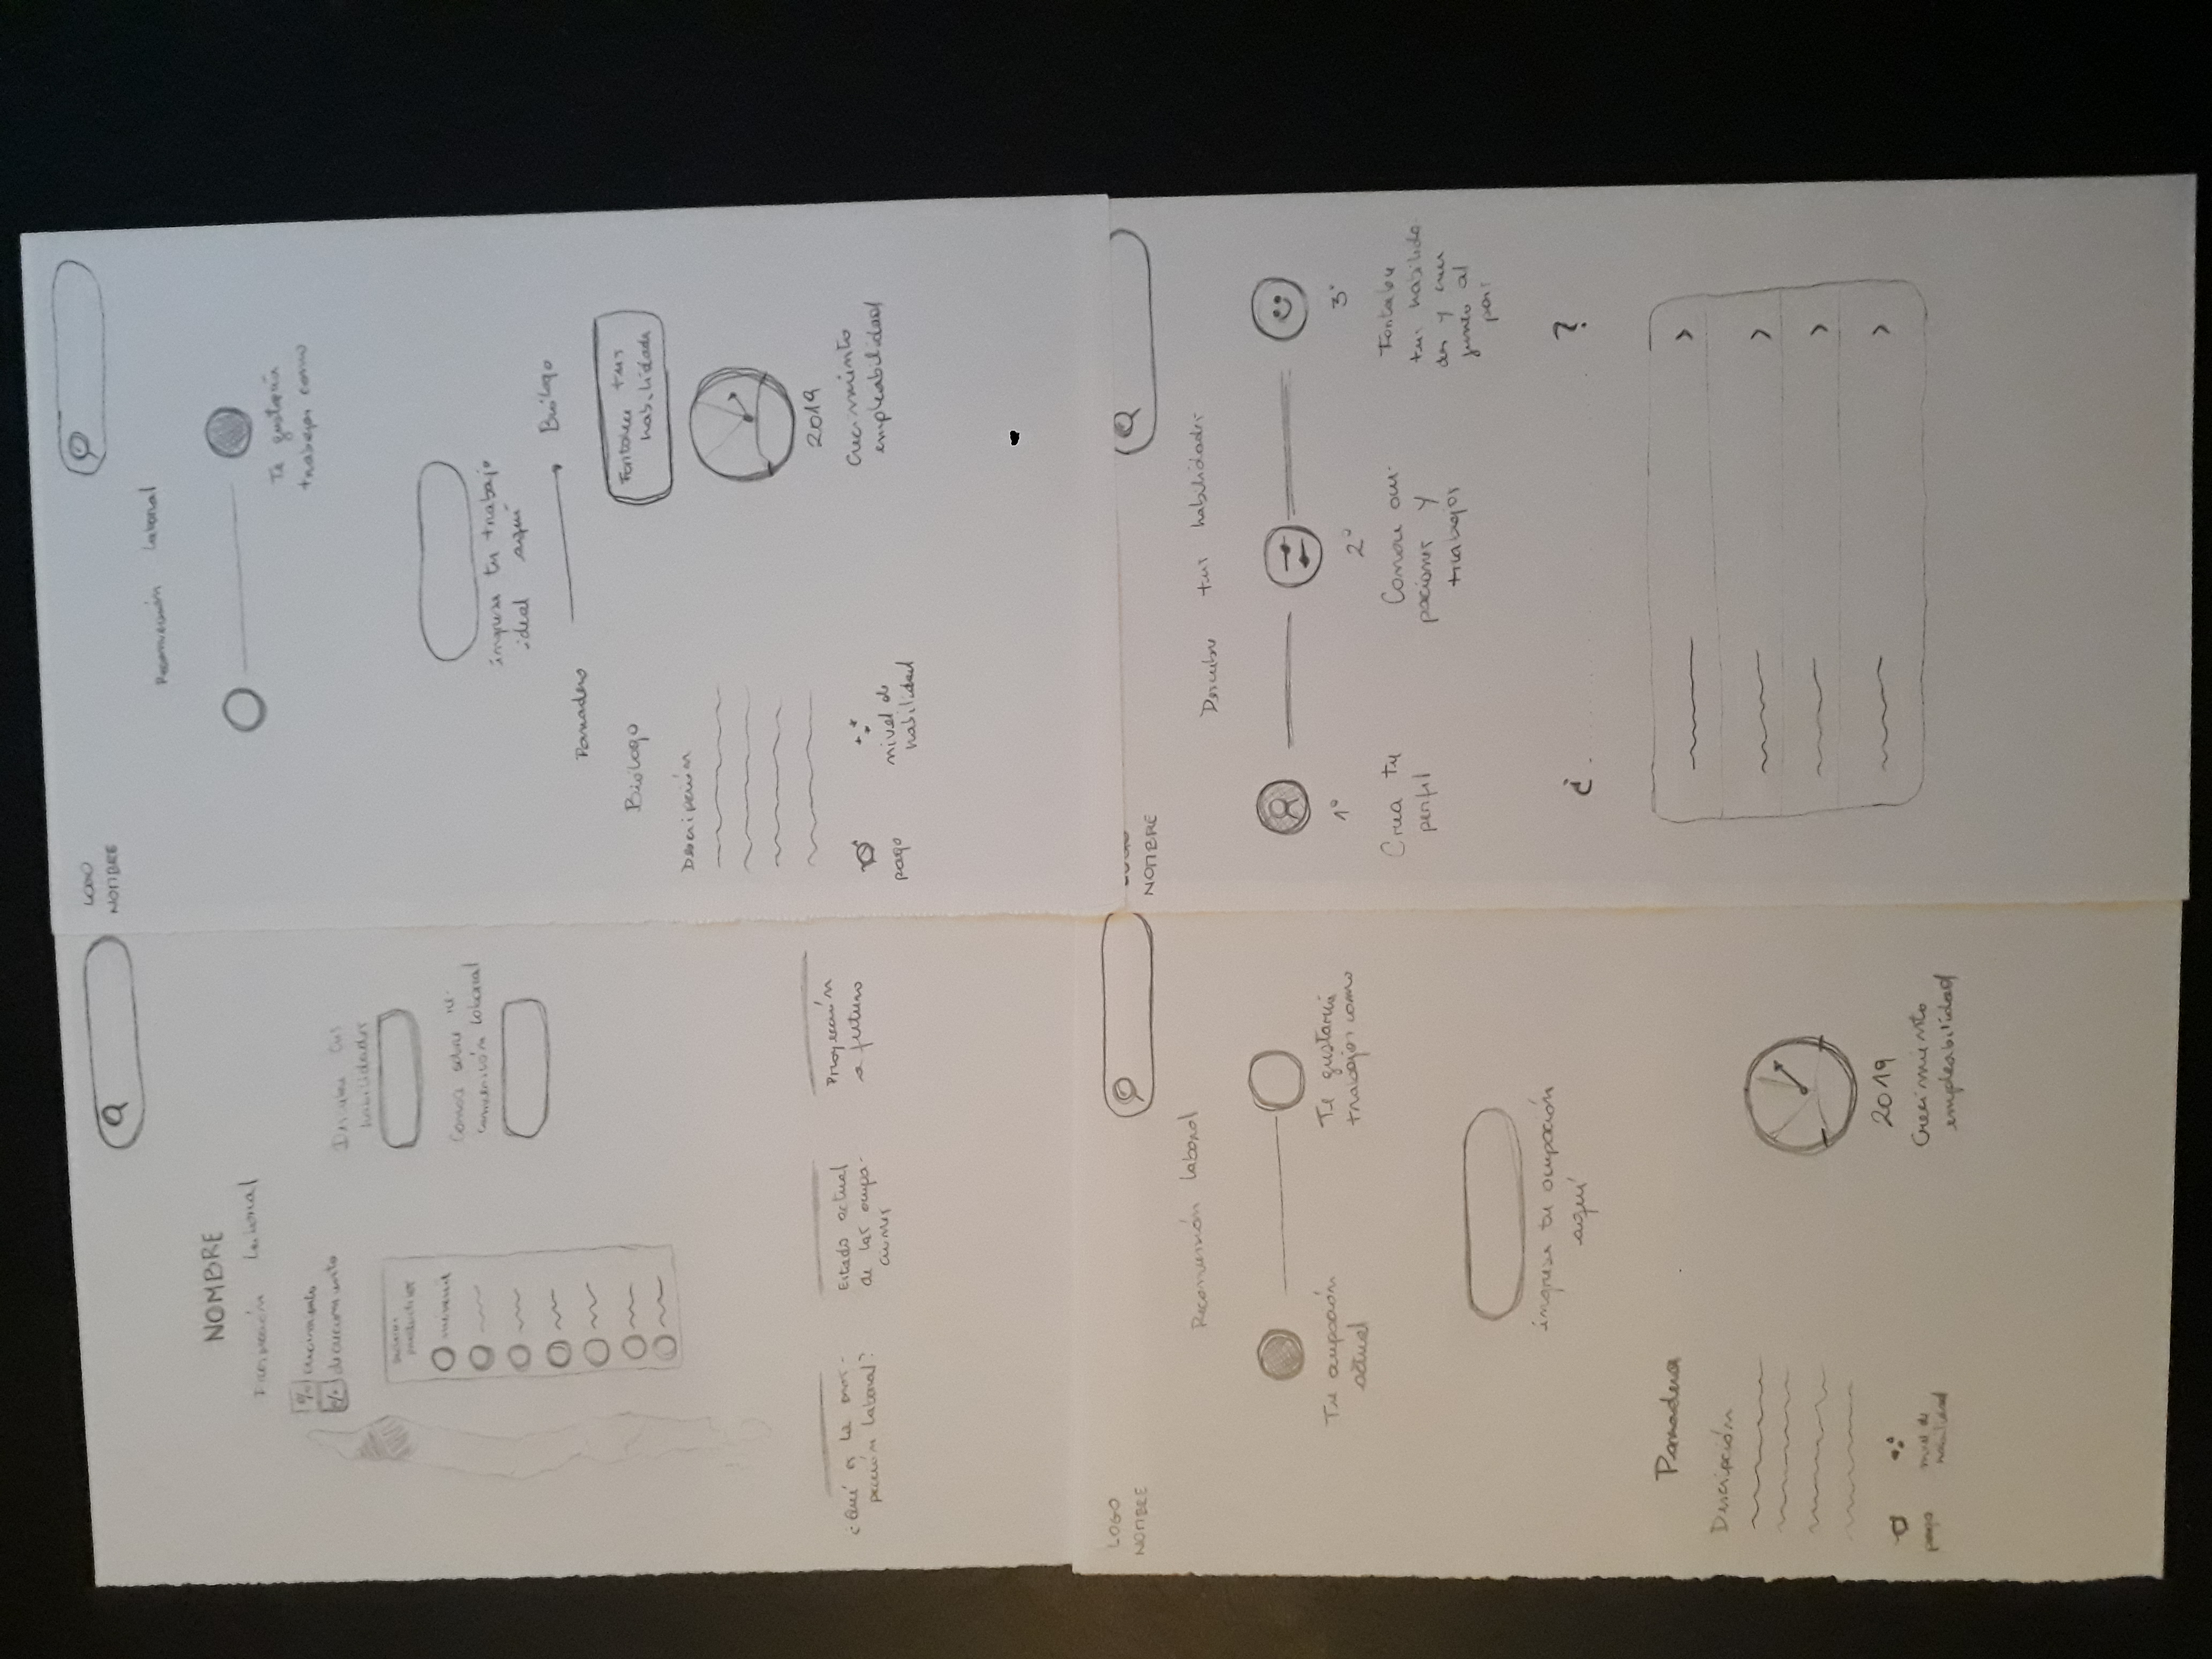 NOMBRE
Prospección laboral
% crecimiento
% decrecimiento
productivos
minería
Descubre tus
habilidades
Conoce sobre re-
conversión laboral
¿Qué es la pros-
pección laboral?
Estado actual
de las ocupa-
ciones
Proyección
a futuro
LOGO
NOMBRE
Reconversión laboral
Te gustaría
trabajar como
ingresa tu trabajo
ideal aquí
Panadero
Biólogo
Biólogo
Fortalece tus
habilidades
Descripción
2019
Crecimiento
empleabilidad
pago
nivel de
habilidad
LOGO
NOMBRE
Reconversión laboral
Tu ocupación
actual
Te gustaría
trabajar como
ingresa tu ocupación
aquí
Panadera
Descripción
2019
Crecimiento
empleabilidad
pago
nivel de
habilidad
NOMBRE
Descubre tus habilidades
1°
2°
3°
Crea tu
perfil
Conoce ocu-
paciones y
trabajos
Fortalece
tus habilida-
des y crece
junto al
país
¿ ?